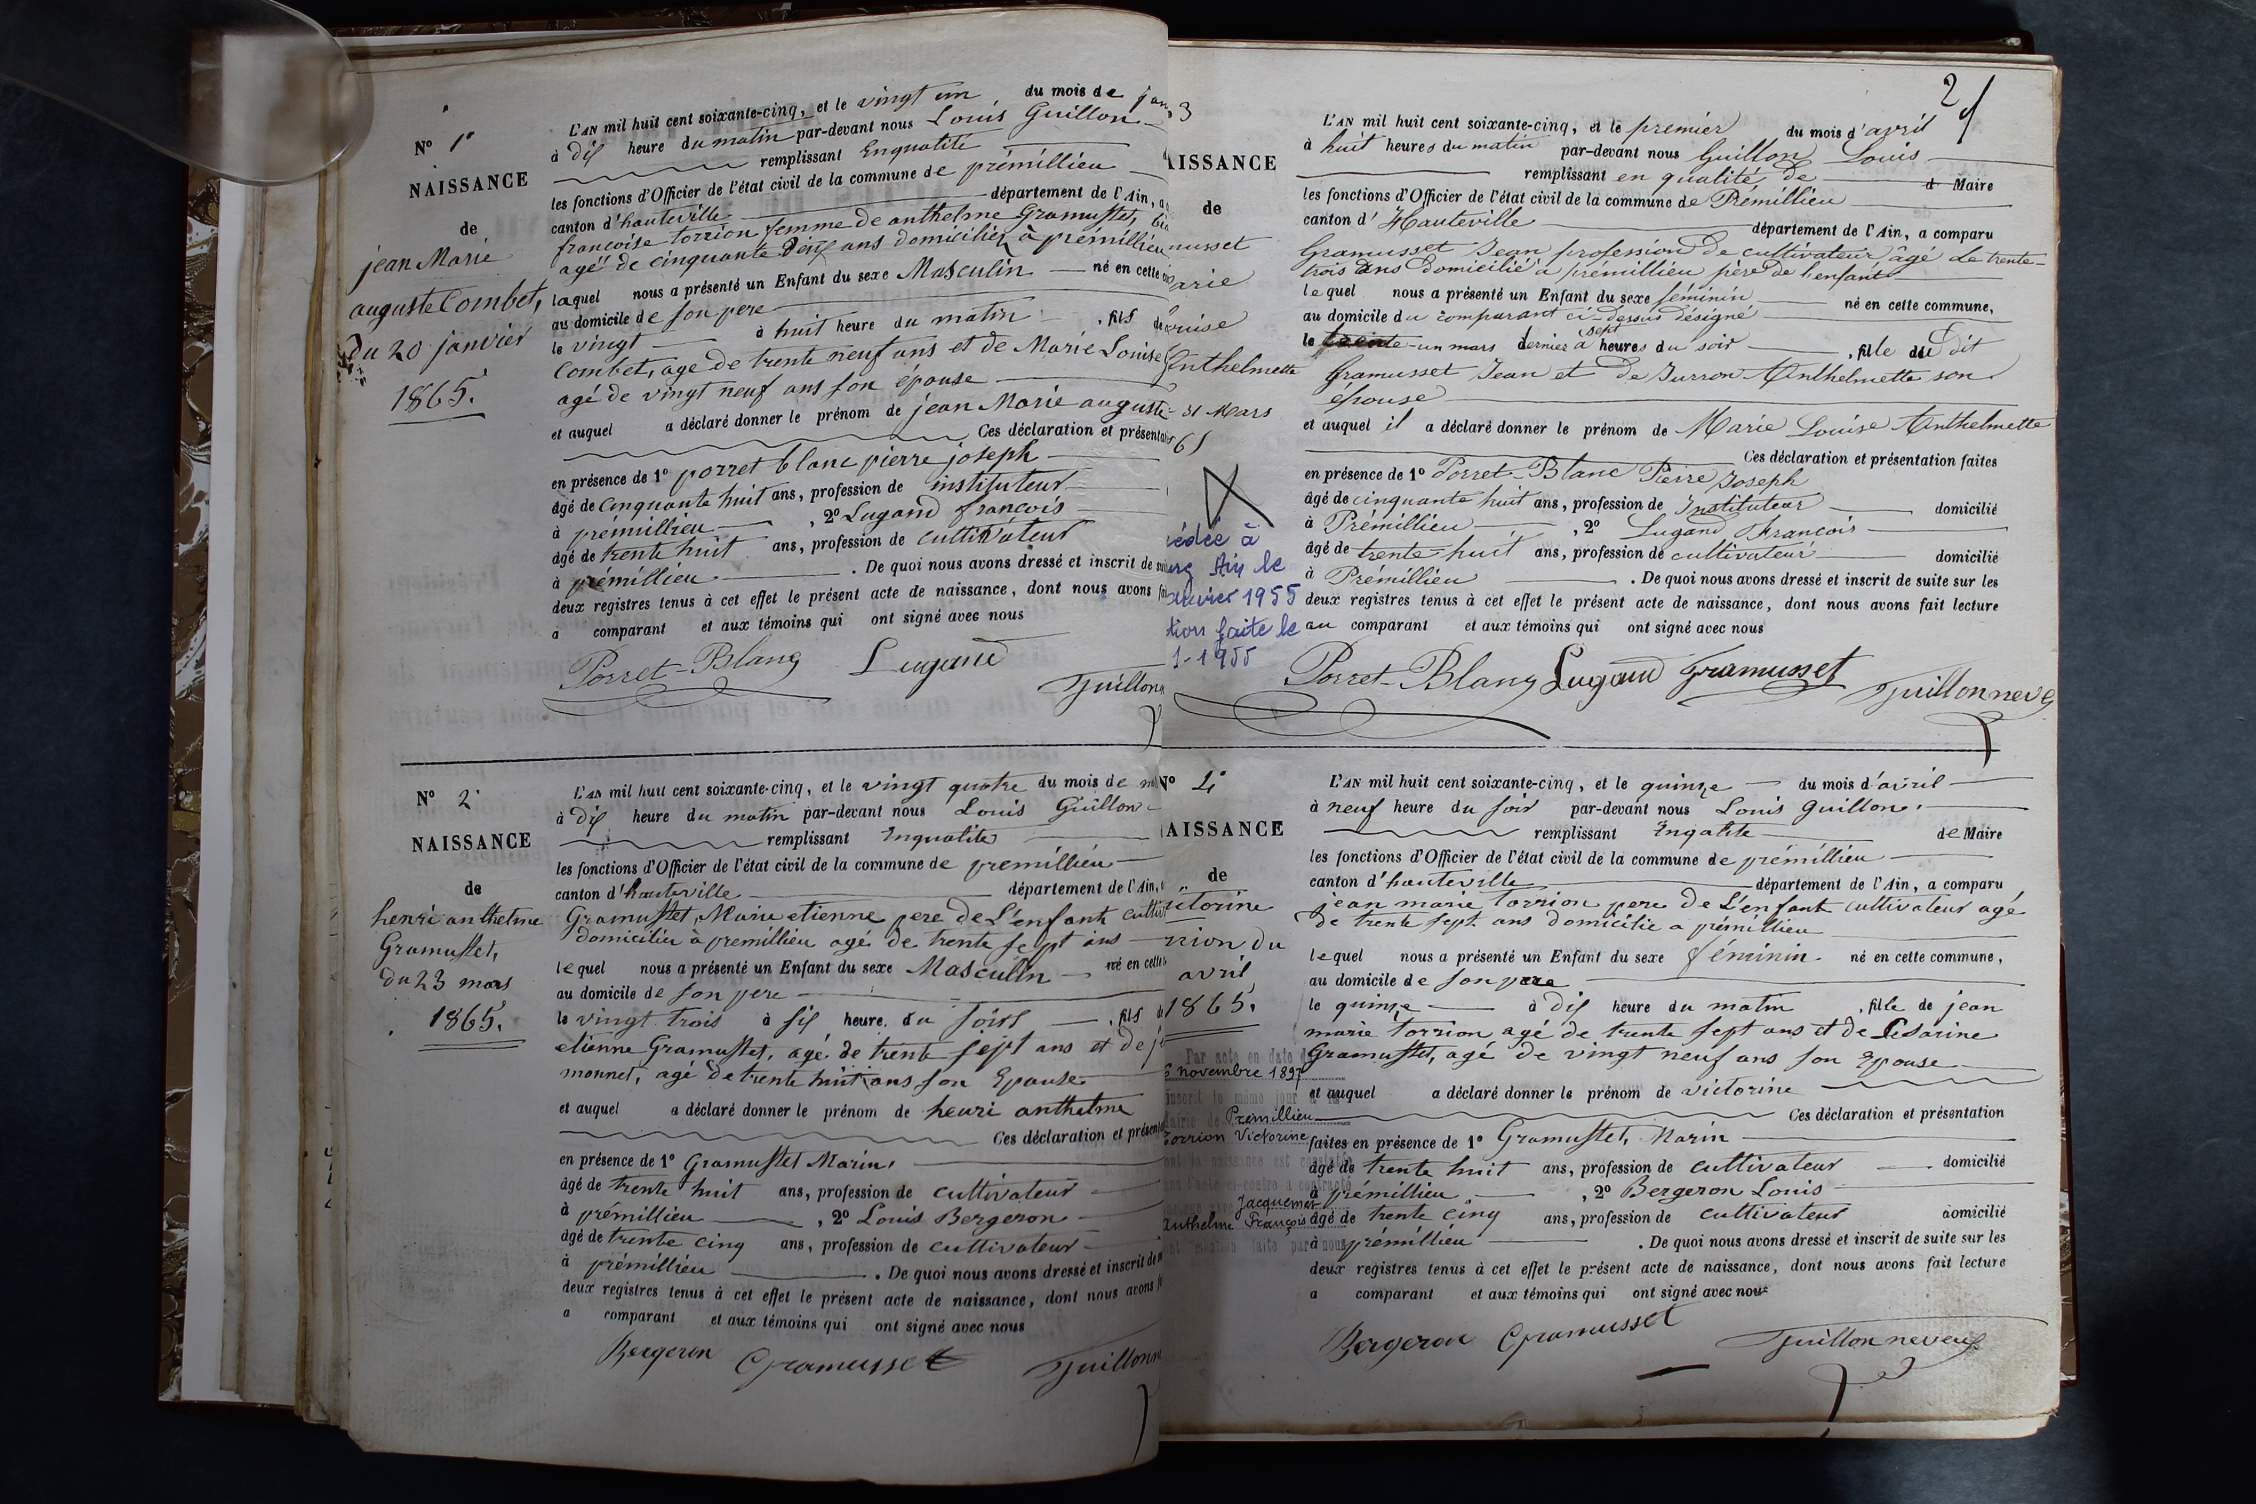 N° 1°
NAISSANCE
de
jean Marie
auguste Combet,
du 20 janvier
1865.
L'AN mil huit cent soixante-cinq, et le vingt un du mois de
à dix heure du matin par-devant nous Louis Guillon
remplissant Enqualité
les fonctions d'Officier de l'état civil de la commune de prémillieu
canton d'hauteville département de l'Ain,
francoise torrion femme de anthelme Gramusset,
agée de cinquante ans domiciliée à prémillieu
laquel nous a présenté un Enfant du sexe Masculin né en cette
au domicile de son pere
le vingt à huit heure du matin , fils
Combet, age de trente neuf ans et de Marie Louise
agé de vingt neuf ans son épouse
et auquel a déclaré donner le prénom de jean Marie auguste
Ces déclaration et
en présence de 1° porret blanc pierre joseph
âgé de cinquante huit ans, profession de instituteur
à prémillieu , 2° Lugand francois
âgé de trente huit ans, profession de cultivateur
à prémillieu . De quoi nous avons dressé et inscrit de
deux registres tenus à cet effet le présent acte de naissance, dont nous avons
a comparant et aux témoins qui ont signé avec nous
Porret-Blanc Lugand Guillon
N° 2°
NAISSANCE
de
henri anthelme
Gramusset,
du 23 mars
1865.
L'AN mil huit cent soixante-cinq, et le vingt quatre du mois de
à dix heure du matin par-devant nous Louis Guillon
remplissant Enqualite
les fonctions d'Officier de l'état civil de la commune de premillieu
canton d'hauteville département de l'Ain,
Gramusset, Marie etienne pere de L'enfant
domicilier à premillieu agé de trente sept ans
lequel nous a présenté un Enfant du sexe Masculin né en cette
au domicile de son pere
le vingt trois à six heure du soir , fils
etienne Gramusset, agé de trente sept ans et de
monnet, agé de trente huit ans son Epouse
et auquel a déclaré donner le prénom de henri anthelme
Ces déclaration et
en présence de 1° Gramusset Marin,
âgé de trente huit ans, profession de cultivateur
à prémillieu , 2° Louis Bergeron
âgé de trente cinq ans, profession de cultivateur
à prémillieu . De quoi nous avons dressé et inscrit de
deux registres tenus à cet effet le présent acte de naissance, dont nous avons
a comparant et aux témoins qui ont signé avec nous
Bergeron Gramusset
2
3
AISSANCE
de
musset
arie
ouise
Anthelmette
31 Mars
édée à
Ain le
1955
tion faite le
1-1955
L'AN mil huit cent soixante-cinq, et le premier du mois d'avril
à huit heures du matin par-devant nous Guillon Louis
remplissant en qualité de Maire
les fonctions d'Officier de l'état civil de la commune de Prémillieu
canton d'Hauteville département de l'Ain, a comparu
Gramusset Jean profession de cultivateur âgé de trente-
trois ans domicilié à premillieu père de l'enfant
lequel nous a présenté un Enfant du sexe féminin né en cette commune,
au domicile du comparant ci-dessus désigné
le trente-un mars dernier à sept heures du soir , fille du dit
Gramusset Jean et de Jurron Anthelmette son
épouse
et auquel il a déclaré donner le prénom de Marie Louise Anthelmette
Ces déclaration et présentation faites
en présence de 1° Porret-Blanc Pierre Joseph
âgé de cinquante huit ans, profession de Instituteur domicilié
à Prémillieu , 2° Lugand François
âgé de trente-huit ans, profession de cultivateur domicilié
à Prémillieu . De quoi nous avons dressé et inscrit de suite sur les
deux registres tenus à cet effet le présent acte de naissance, dont nous avons fait lecture
au comparant et aux témoins qui ont signé avec nous
Porret-Blanc Lugand Gramusset Guillon neveu
N° 4°
AISSANCE
de
ictorine
rrion du
avril
1865.
Par acte en date
novembre 1897
inscrit le même jour
Prémillieu
Torrion Victorine
Jacquemet
Anthelme François
L'AN mil huit cent soixante-cinq, et le quinze du mois d'avril
à neuf heure du soir par-devant nous Louis Guillon.
remplissant Enqalite de Maire
les fonctions d'Officier de l'état civil de la commune de prémillieu
canton d'hauteville département de l'Ain, a comparu
jean marie torrion pere de L'enfant cultivateur agé
de trente sept ans domicilie a prémillieu
lequel nous a présenté un Enfant du sexe féminin né en cette commune,
au domicile de son pere
le quinze à dix heure du matin , fille de jean
marie torrion agé de trente sept ans et de Cesarine
Gramusset, agé de vingt neuf ans son Epouse
et auquel a déclaré donner le prénom de victorine
Ces déclaration et présentation
faites en présence de 1° Gramusset, Marin
âgé de trente huit ans, profession de cultivateur domicilié
à prémillieu , 2° Bergeron Louis
âgé de trente cinq ans, profession de cultivateur domicilié
à prémillieu . De quoi nous avons dressé et inscrit de suite sur les
deux registres tenus à cet effet le présent acte de naissance, dont nous avons fait lecture
a comparant et aux témoins qui ont signé avec nous
Bergeron Gramusset Guillon neveu